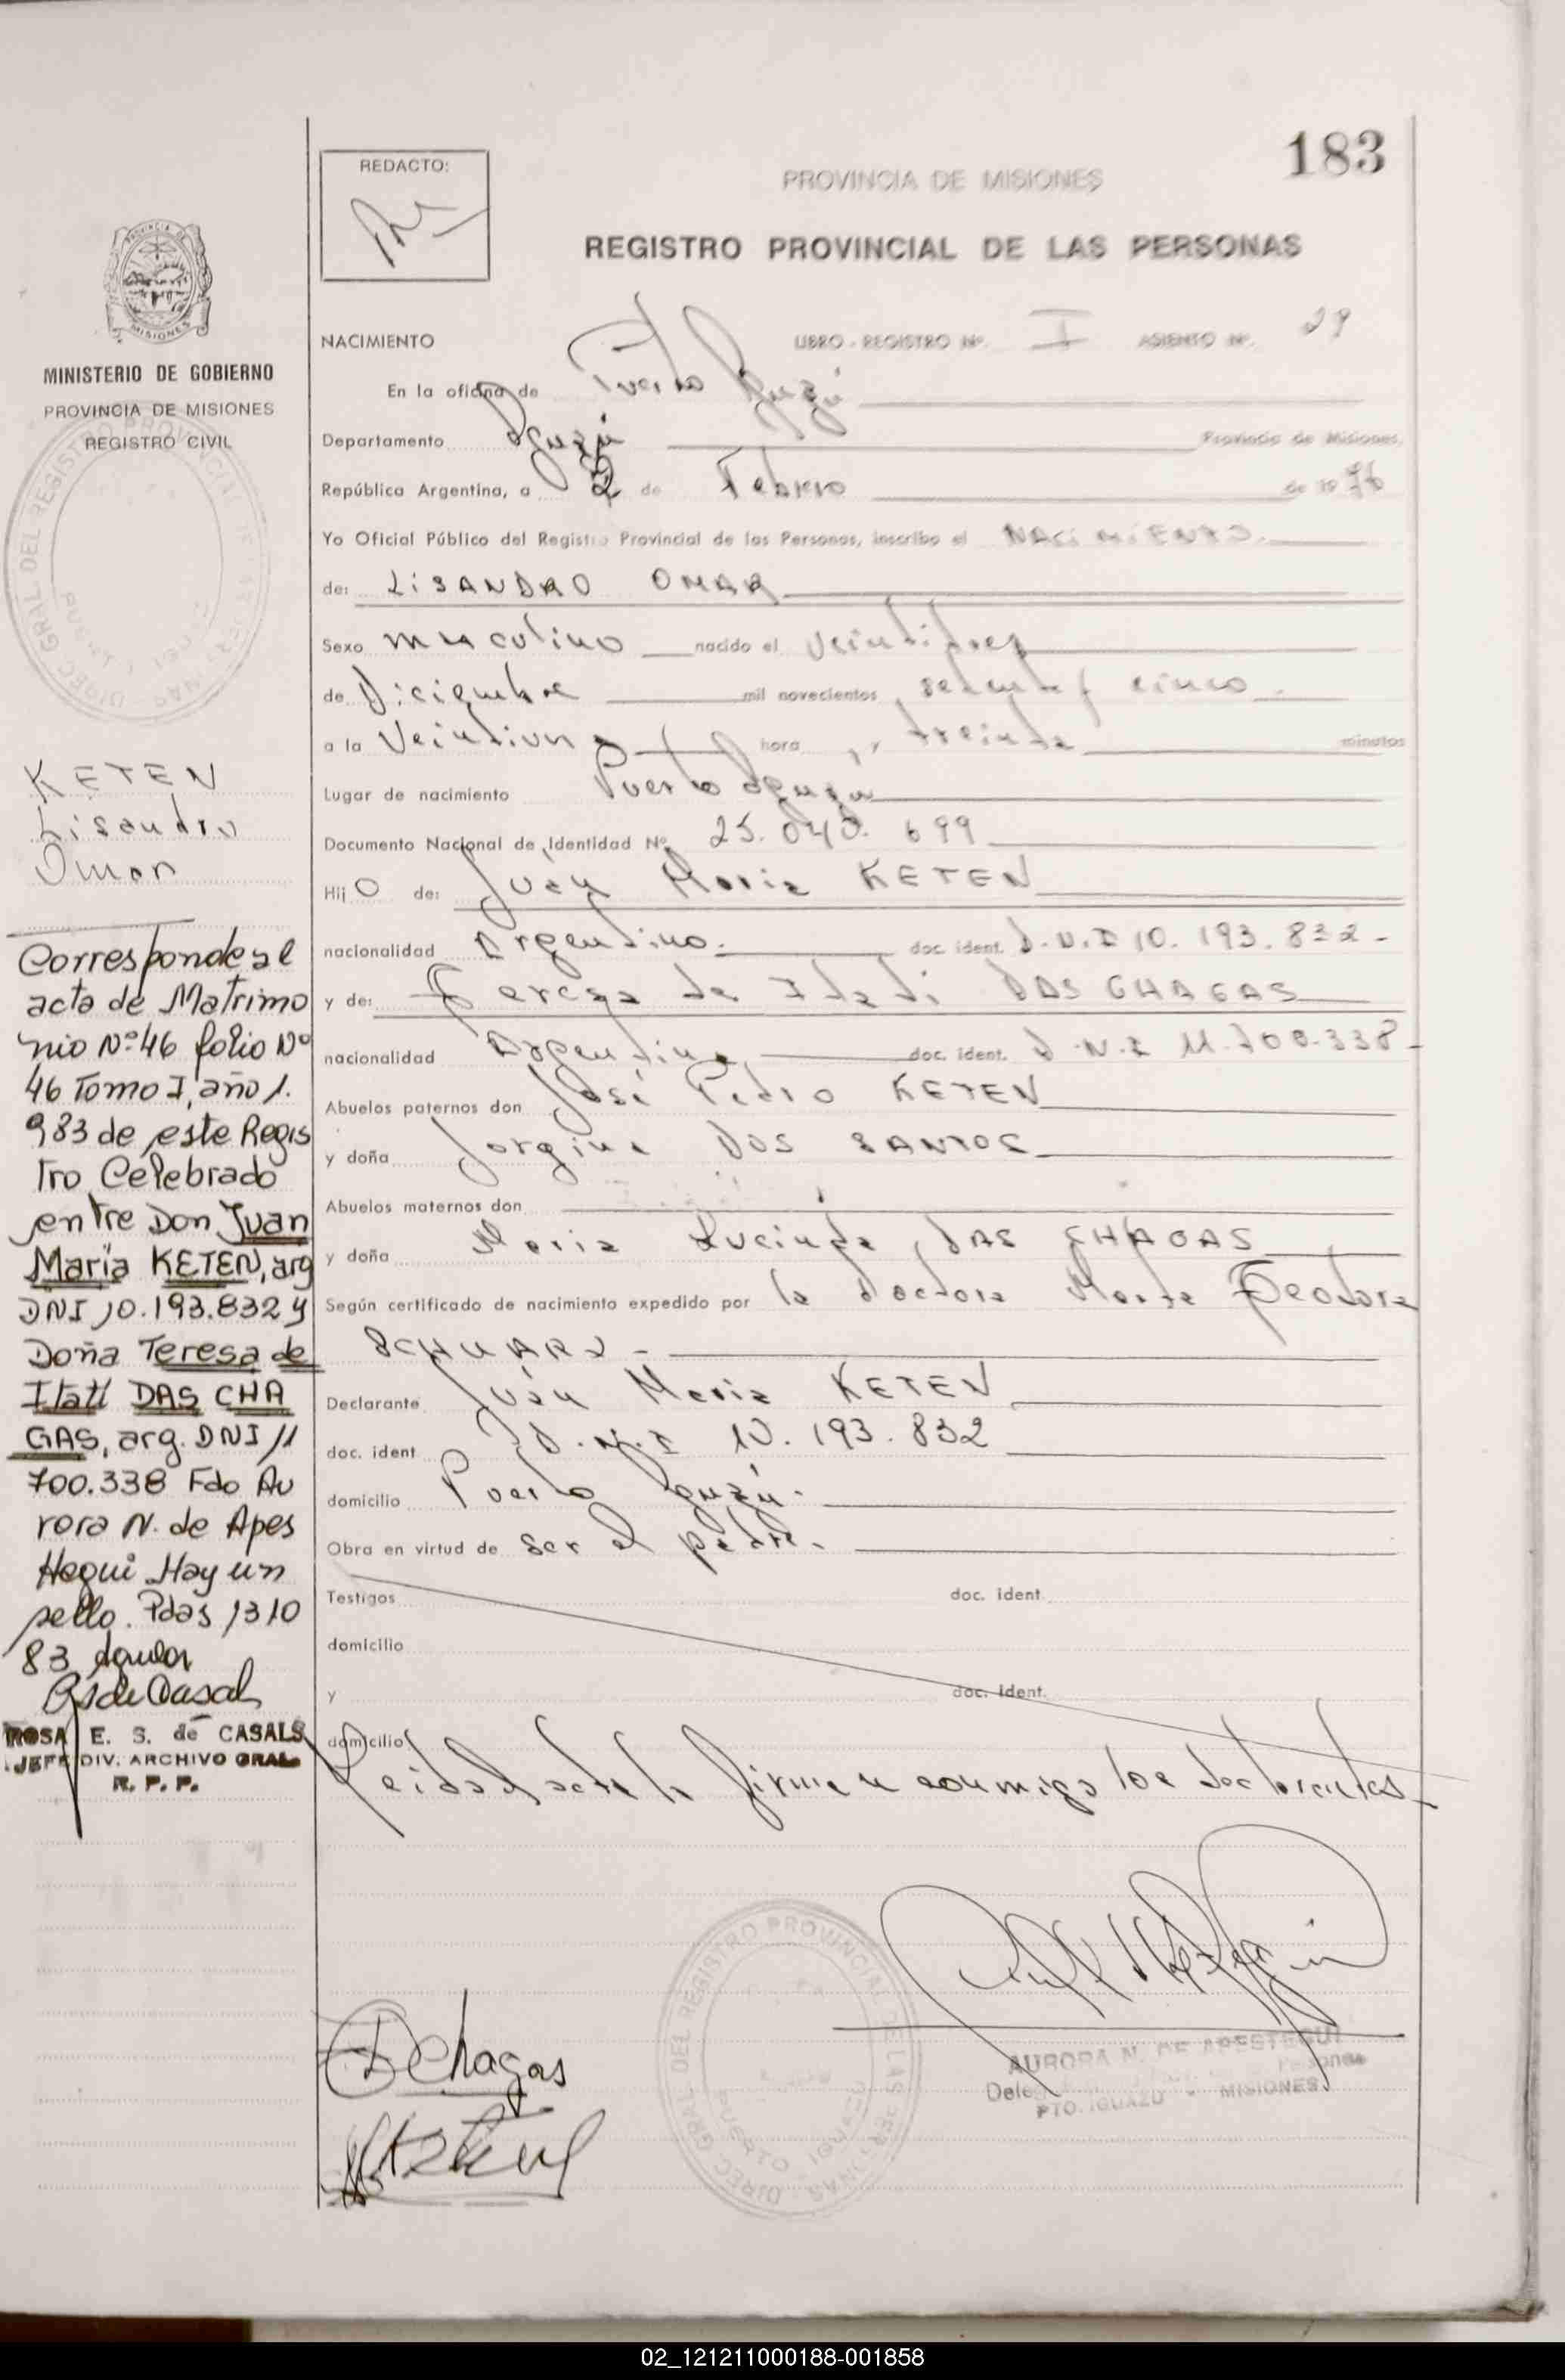 183
REDACTO:
PROVINCIA DE MISIONES
REGISTRO PROVINCIAL DE LAS PERSONAS
NACIMIENTO LIBRO - REGISTRO Nº. I ASIENTO Nº. 29
En la oficina de Puerto Iguazú
Departamento Iguazú Provincia de Misiones,
República Argentina, a 2 de Febrero de 1976
Yo Oficial Público del Registro Provincial de las Personas, inscribo el NACIMIENTO.
de: LISANDRO OMAR
Sexo masculino nacido el Veintitres
de Diciembre mil novecientos setenta y cinco.
a la Veintiuna hora, y treinta minutos
Lugar de nacimiento Puerto Iguazú
Documento Nacional de Identidad Nº 25.040.699
Hijo de: Juan Maria KETEN
nacionalidad Argentino. doc. ident. D.N.I 10.193.832-
y de: Teresa de Itati DAS CHAGAS
nacionalidad Argentina doc. ident. D.N.I 11.700.338-
Abuelos paternos don José Pedro KETEN
y doña Jorgina DOS SANTOS
Abuelos maternos don
y doña Maria Lucinda DAS CHAGAS
Según certificado de nacimiento expedido por la doctora Marta Teodora
SCHUARZ -
Declarante Juan Maria KETEN
doc. ident D.N.I 10.193.832
domicilio Puerto Iguazú.
Obra en virtud de ser el padre.
Testigos doc. ident.
domicilio
y doc. ident.
domicilio
Leida el acta la firman conmigo los declarantes-
DChagas
AURORA N. DE APESTEGUI
PTO. IGUAZU - MISIONES
DIREC GRAL DEL REGISTRO PROVINCIAL DE LAS PERSONAS
PUERTO IGUAZU
PROVINCIA DE
MISIONES
MINISTERIO DE GOBIERNO
PROVINCIA DE MISIONES
REGISTRO CIVIL
KETEN
Lisandro
Omar
Corresponde al
acta de Matrimo
nio Nº 46 folio Nº
46 Tomo I, año 1.
983 de este Regis
tro Celebrado
entre Don Juan
María KETEN, arg
DNI 10.193.832 y
Doña Teresa de
Itatí DAS CHA
GAS, arg. DNI 11
700.338 Fdo Au
rora N. de Apes
tegui Hay un
sello. Pdas 1310
83
ROSA E. S. de CASALS
JEFE DIV. ARCHIVO GRAL.
R. P. P.
02_121211000188-001858